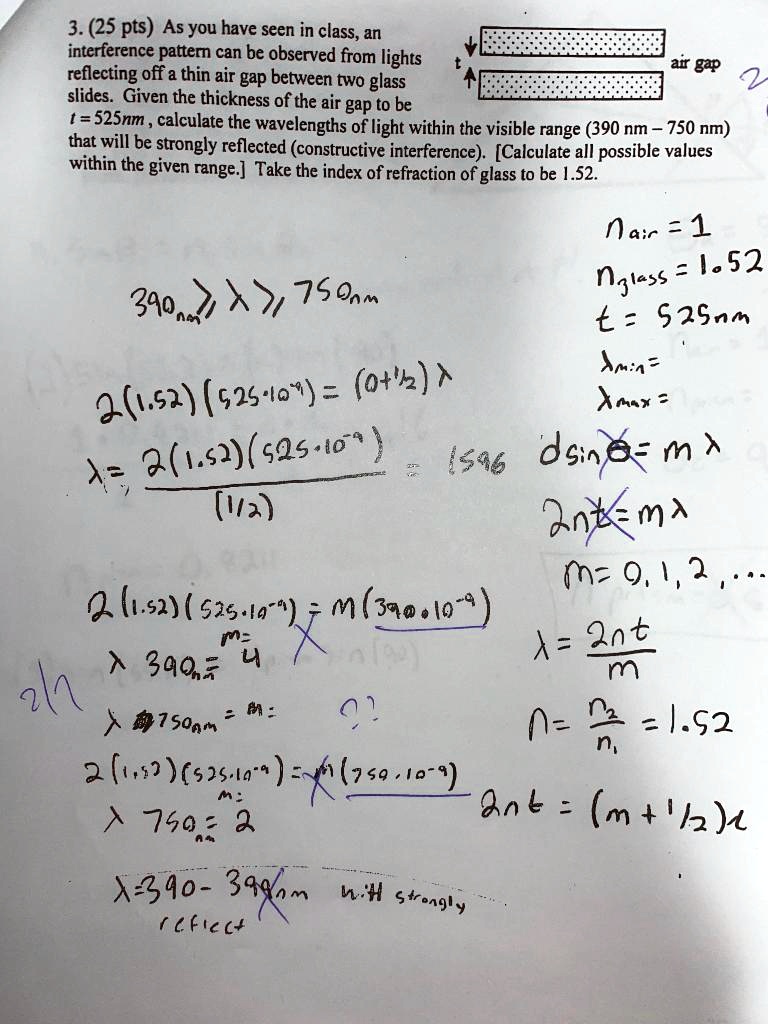 3. (25 pts) As you have seen in class, an
interference pattern can be observed from lights
reflecting off a thin air gap between two glass
slides. Given the thickness of the air gap to be
t = 525nm, calculate the wavelengths of light within the visible range (390 nm – 750 nm)
that will be strongly reflected (constructive interference). [Calculate all possible values
within the given range.] Take the index of refraction of glass to be 1.52.
t
air gap
n air = 1
n glass = 1.52
t = 525nm
λ min =
λ max =
d sin θ = m λ
2nt = mλ
m = 0, 1, 2, ...
λ = 2nt / m
n = n₂ / n₁ = 1.52
2nt = (m + 1/2)λ
390nm ≥ λ ≥ 750nm
2(1.52)(525·10⁻⁹) = (0+1/2) λ
λ = 2(1.52)(525·10⁻⁹) / (1/2) = 1596
2(1.52)(525·10⁻⁹) = m(390·10⁻⁹)
m=
λ 390nm = 4
λ 750nm = m=
??
2(1.52)(525·10⁻⁹) = m(750·10⁻⁹)
m=
λ 750nm = 2
λ=390 - 399nm will strongly
reflect